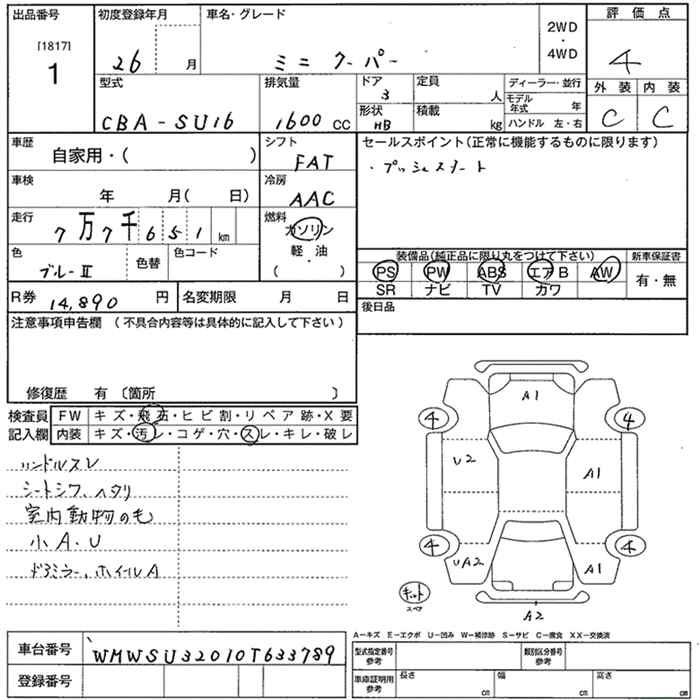 出品番号 初度登録年月 車名・グレード 2WD・4WD 評価点
[1817]
1 26 月 ミニ クーパー 4
型式 排気量 ドア 定員 ディーラー・並行 外装 内装
3 人 モデル年式 年
CBA-SU16 1600 CC 形状 HB 積載 kg ハンドル 左・右 C C
車歴 シフト セールスポイント(正常に機能するものに限ります)
自家用・( ) FAT ・プッシュスタート
車検 冷房
年 月( 日) AAC
走行 燃料
7万7千651km ガソリン
軽・油
( )
色 色替 色コード 装備品(純正品に限り丸をつけて下さい) 新車保証書
ブルーII PS PW ABS エアB AW 有・無
SR ナビ TV カワ
R券 14,890 円 名変期限 月 日 後日品
注意事項申告欄 (不具合内容等は具体的に記入して下さい)
修復歴 有 〔箇所 〕
検査員 FW キズ・飛石・ヒビ割・リペア跡・X要
記入欄 内装 キズ・汚レ・コゲ・穴・スレ・キレ・破レ
ハンドルスレ
シートシワ、ヘタリ
室内動物の毛
小A.U
ドアミラー、ホイールA
A1
4 4
U2 A1
4 4
UA2 A1
キット
スペア
A2
A-キズ E-エクボ U-凹み W-補修跡 S-サビ C-腐食 XX-交換済
車台番号 WMWSU32010T633789
型式指定番号 参考 類別区分番号 参考
登録番号
車庫証明用 参考 長さ cm 幅 cm 高さ cm